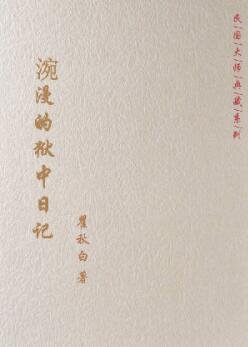 民/国/大/师/典/藏/系/列
涴漫的狱中日记
瞿秋白著